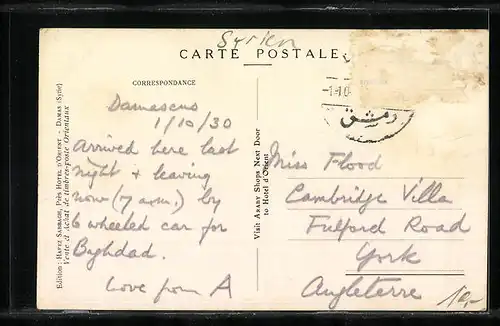 Syrien
CARTE POSTALE
CORRESPONDANCE
Damascus
1/10/30
Arrived here last
night & leaving
now (7 a.m.) by
6 wheeled car for
Baghdad.
Love from A
Edition : HAFEZ SABBAGH, PRÈS HOTEL D'ORIENT - DAMAS (Syrie)
Vente & Achat de timbres-Poste Orientaux
Visit AKABY Shops Next Door
to Hotel d'Orient
دمشق
Miss Flood
Cambridge Villa
Fulford Road
York
Angleterre
10,-